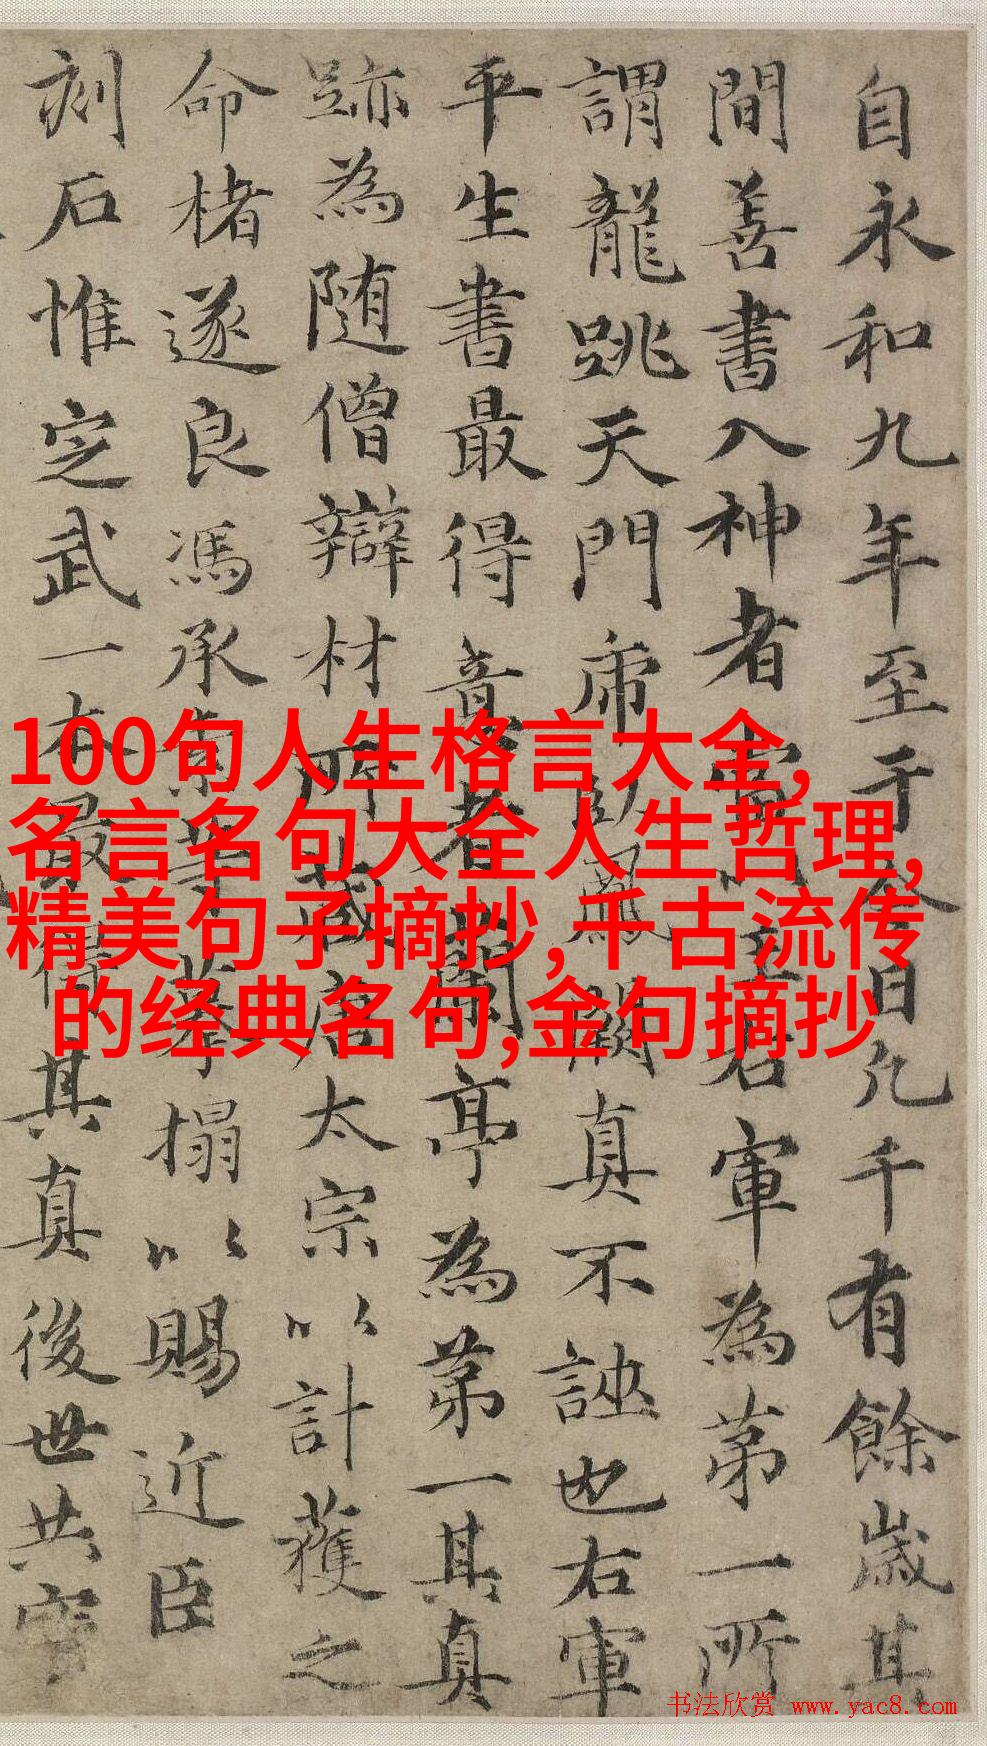 自永和九年至于今日凡千有餘歲其
間善書入神者當王軍為第一所
謂龍跳天門虎臥鳳閣真不誣也右軍
平生書最得意者蘭亭為第一其真
跡為随僧辯材所藏唐太宗以計獲之
命楮遂良馮承素等摹搨以賜近臣
刻石惟定武一本最其真後世共寶
100句人生格言大全,
名言名句大全人生哲理,
精美句子摘抄,千古流传
的经典名句,金句摘抄
书法欣赏 www.yac8.com